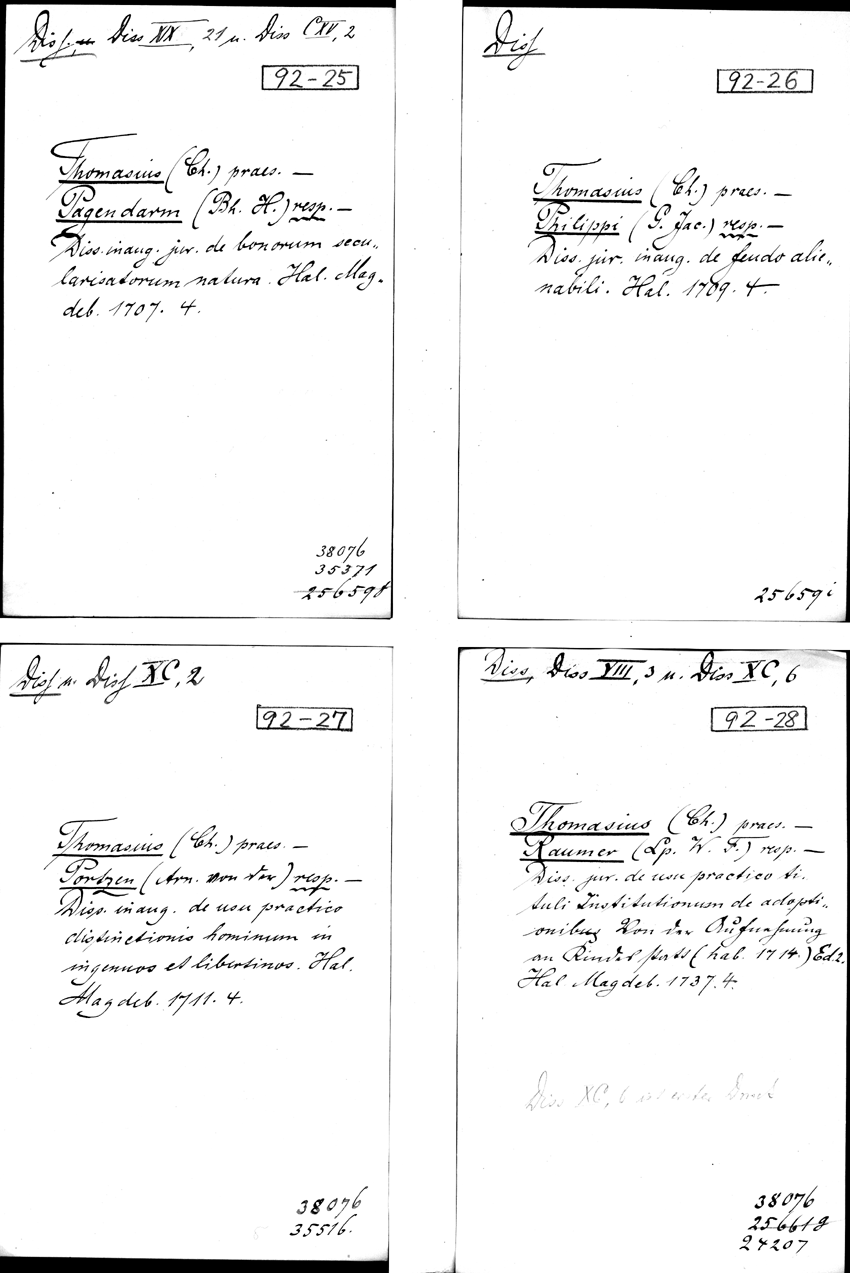 Diss. u. Diss XIX, 21 u. Diss CXV, 2
92-25
Thomasius (Ch.) praes. —
Pagendarm (Bh. H.) resp. —
Diss. inaug. jur. de bonorum secu„
larisatorum natura. Hal. Mag„
deb. 1707. 4.
38076
35371
25659f
Diss
92-26
Thomasius (Ch.) praes. —
Philippi (G. Jac.) resp. —
Diss. jur. inaug. de feudo alie„
nabili. Hal. 1709. 4
25659i
Diss u. Diss XC, 2
92-27
Thomasius (Ch.) praes. —
Portzen (Arn. von der) resp. —
Diss. inaug. de usu practico
distinctionis hominum in
ingenuos et libertinos. Hal.
Magdeb. 1711. 4.
38076
35516.
Diss, Diss VIII, 3 u. Diss XC, 6
92-28
Thomasius (Ch.) praes. —
Raumer (Lp. W. F.) resp. —
Diss. jur. de usu practico ti„
tuli Institutionum de adopti„
onibus Von der Aufnehmung
an Kindes statt (hab. 1714.) Ed. 2.
Hal Magdeb. 1737. 4.
Diss XC, 6 ist erster Druck
38076
25661g
24207